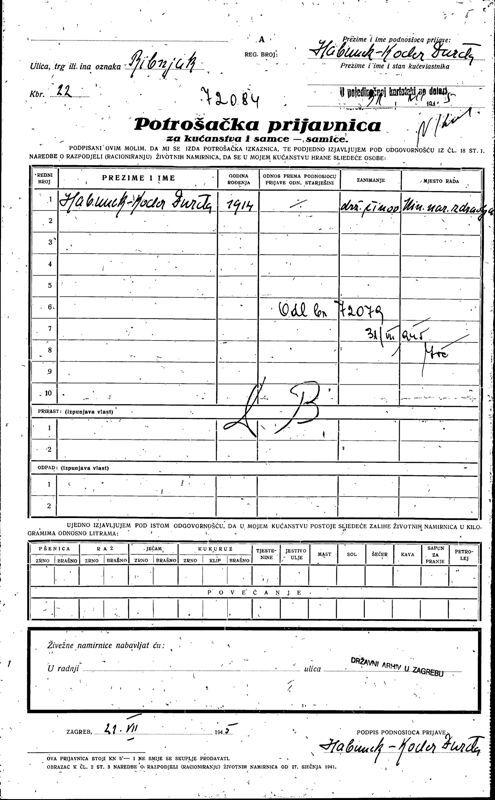 A
REG. BROJ:
Prezime i ime podnosioca prijave:
Habunek-Koder Đurđa
Ulica, trg ili ina oznaka Ribnjak
Prezime i ime i stan kućevlastnika
Kbr. 22
72084
Potrošačka prijavnica
za kućanstva i samce — samice.
PODPISANI OVIM MOLIM, DA MI SE IZDA POTROŠAČKA IZKAZNICA, TE PODJEDNO IZJAVLJUJEM POD ODGOVORNOŠĆU IZ ČL. 18 ST. 1.
NAREDBE O RAZPODJELI (RACIONIRANJU) ŽIVOTNIH NAMIRNICA, DA SE U MOJEM KUĆANSTVU HRANE SLIEDEĆE OSOBE:
REDNI BROJ PREZIME I IME GODINA ROĐENJA ODNOS PREMA PODNOSIOCU PRIJAVE ODN. STARJEŠINI ZANIMANJE MJESTO RADA
1 Habunek-Koder Đurđa 1914 drž. činov Min. nar. zdravlja
2
3
4
5
6 Odl br 72079
7 31/VII 945
8
9
10
PRIRAST: (izpunjava vlast)
1
2
ODPAD: (izpunjava vlast)
1
2
UJEDNO IZJAVLJUJEM POD ISTOM ODGOVORNOŠĆU, DA U MOJEM KUĆANSTVU POSTOJE SLIEDEĆE ZALIHE ŽIVOTNIH NAMIRNICA U KILO-
GRAMIMA ODNOSNO LITRAMA:
PŠENICA RAŽ JEČAM KUKURUZ TJESTE-NINE JESTIVO ULJE MAST SOL ŠEĆER KAVA SAPUN ZA PRANJE PETRO-LEJ
ZRNO BRAŠNO ZRNO BRAŠNO ZRNO BRAŠNO ZRNO KLIP BRAŠNO
POVEĆANJE
Živežne namirnice nabavljat ću:
U radnji ulica DRŽAVNI ARHIV U ZAGREBU
ZAGREB, 21. VII 1945
PODPIS PODNOSIOCA PRIJAVE
Habunek-Koder Đurđa
OVA PRIJAVNICA STOJI KN 0·— I NE SMIJE SE SKUPLJE PRODAVATI.
OBRAZAC K ČL. 2 ST. 3 NAREDBE O RAZPODJELI (RACIONIRANJU) ŽIVOTNIH NAMIRNICA OD 27. SIEČNJA 1941.